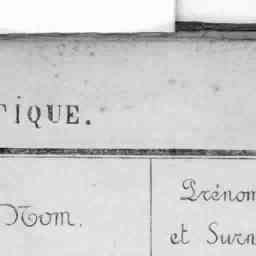 TIQUE.
Prénom
Nom.
et Surn